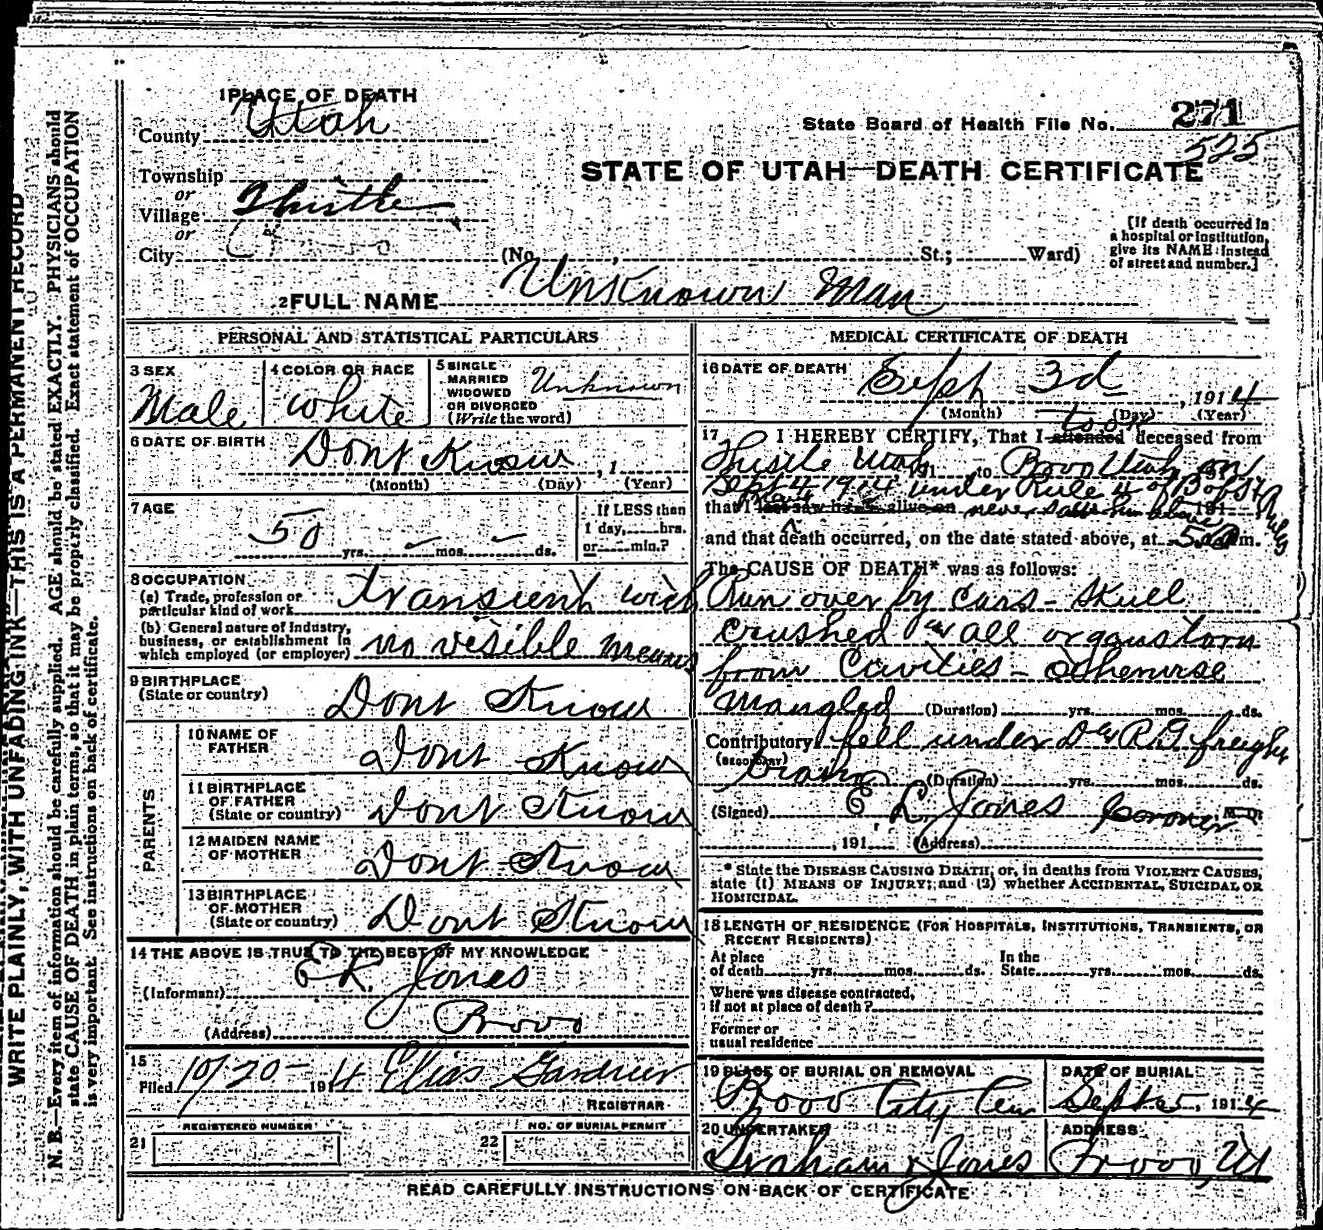 WRITE PLAINLY, WITH UNFADING INK—THIS IS A PERMANENT RECORD
N. B.—Every item of information should be carefully supplied. AGE should be stated EXACTLY. PHYSICIANS should
state CAUSE OF DEATH in plain terms, so that it may be properly classified. Exact statement of OCCUPATION
is very important. See instructions on back of certificate.
1 PLACE OF DEATH
County Utah
Township
or
Village Thistle
or
City
(No. St.; Ward)
State Board of Health File No. 271
525
STATE OF UTAH—DEATH CERTIFICATE
[If death occurred in
a hospital or institution,
give its NAME instead
of street and number.]
2 FULL NAME Unknown Man
PERSONAL AND STATISTICAL PARTICULARS
3 SEX
Male
4 COLOR OR RACE
White
5 SINGLE
MARRIED
WIDOWED
OR DIVORCED
(Write the word)
Unknown
6 DATE OF BIRTH
Dont Know , 1
(Month) (Day) (Year)
7 AGE
50 yrs. – mos. – ds.
If LESS than
1 day, hrs.
or min.?
8 OCCUPATION
(a) Trade, profession or
particular kind of work transient with
(b) General nature of industry,
business, or establishment in
which employed (or employer) no visible means
9 BIRTHPLACE
(State or country)
Dont Know
PARENTS
10 NAME OF
FATHER
Dont Know
11 BIRTHPLACE
OF FATHER
(State or country)
Dont Know
12 MAIDEN NAME
OF MOTHER
Dont Know
13 BIRTHPLACE
OF MOTHER
(State or country)
Dont Know
14 THE ABOVE IS TRUE TO THE BEST OF MY KNOWLEDGE
(Informant) Jones
(Address) Provo
15
Filed 10/20- 1914 Elias Gardner
REGISTRAR
REGISTERED NUMBER
21
NO. OF BURIAL PERMIT
22
MEDICAL CERTIFICATE OF DEATH
16 DATE OF DEATH
Seph 3d , 1914
(Month) (Day) (Year)
took
17 I HEREBY CERTIFY, That I attended deceased from
Utah 191 to Provo Utah on
Sept 4 1914 under Rule 4 of B of H
that I last saw h alive on never saw him alive 191
and that death occurred, on the date stated above, at 5 m.
The CAUSE OF DEATH* was as follows:
Run over by cars - Skull
crushed & all organs torn
from Cavities - otherwise
Mangled (Duration) yrs. mos. ds.
Contributory fell under D & R G freight
(SECONDARY) train (Duration) yrs. mos. ds.
(Signed) E. L. Jones Coroner M. D.
, 191 (Address)
* State the DISEASE CAUSING DEATH, or, in deaths from VIOLENT CAUSES,
state (1) MEANS OF INJURY; and (2) whether ACCIDENTAL, SUICIDAL OR
HOMICIDAL.
18 LENGTH OF RESIDENCE (FOR HOSPITALS, INSTITUTIONS, TRANSIENTS, OR
RECENT RESIDENTS)
At place
of death yrs. mos. ds.
In the
State yrs. mos. ds.
Where was disease contracted,
if not at place of death?
Former or
usual residence
19 PLACE OF BURIAL OR REMOVAL
Provo City Cem
DATE OF BURIAL
Sept 5, 1914
20 UNDERTAKER
Graham & Jones
ADDRESS
Provo, Ut
READ CAREFULLY INSTRUCTIONS ON BACK OF CERTIFICATE